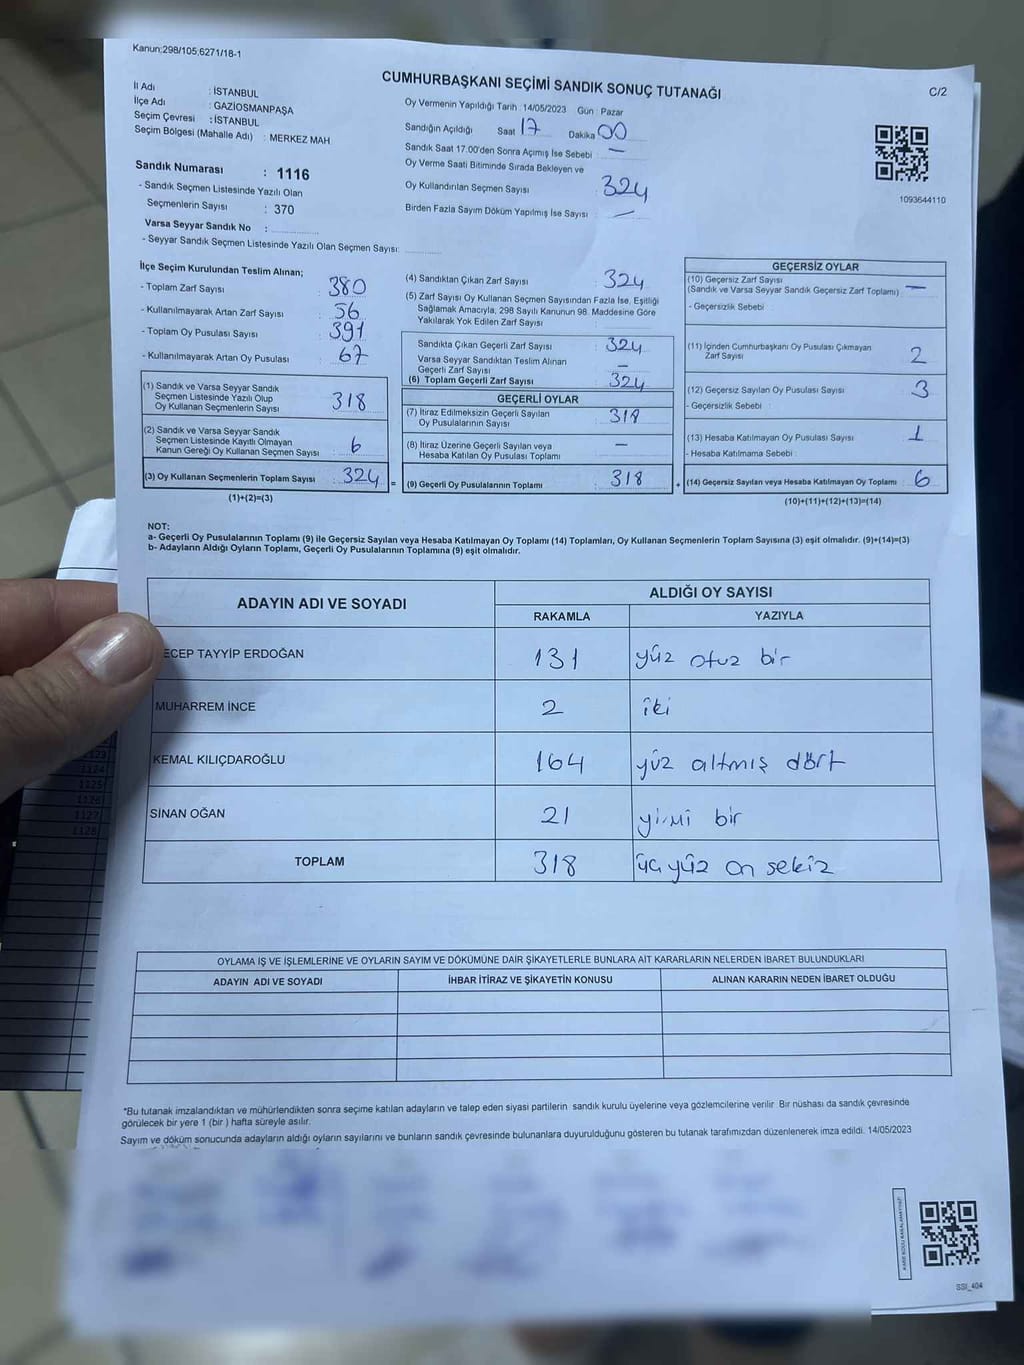 Kanun:298/105;6271/18-1
CUMHURBAŞKANI SEÇİMİ SANDIK SONUÇ TUTANAĞI
C/2
İl Adı : İSTANBUL
İlçe Adı : GAZİOSMANPAŞA
Seçim Çevresi : İSTANBUL
Seçim Bölgesi (Mahalle Adı) : MERKEZ MAH
Sandık Numarası : 1116
- Sandık Seçmen Listesinde Yazılı Olan
Seçmenlerin Sayısı : 370
Varsa Seyyar Sandık No :
- Seyyar Sandık Seçmen Listesinde Yazılı Olan Seçmen Sayısı:
Oy Vermenin Yapıldığı Tarih : 14/05/2023 Gün : Pazar
Sandığın Açıldığı Saat 17 Dakika 00
Sandık Saat 17.00'den Sonra Açımış İse Sebebi : —
Oy Verme Saati Bitiminde Sırada Bekleyen ve
Oy Kullandırılan Seçmen Sayısı : 324
Birden Fazla Sayım Döküm Yapılmış İse Sayısı : —
1093644110
İlçe Seçim Kurulundan Teslim Alınan;
- Toplam Zarf Sayısı : 380
- Kullanılmayarak Artan Zarf Sayısı : 56
- Toplam Oy Pusulası Sayısı : 391
- Kullanılmayarak Artan Oy Pusulası : 67
(1) Sandık ve Varsa Seyyar Sandık
Seçmen Listesinde Yazılı Olup
Oy Kullanan Seçmenlerin Sayısı : 318
(2) Sandık ve Varsa Seyyar Sandık
Seçmen Listesinde Kayıtlı Olmayan
Kanun Gereği Oy Kullanan Seçmen Sayısı : 6
(3) Oy Kullanan Seçmenlerin Toplam Sayısı : 324 =
(1)+(2)=(3)
(4) Sandıktan Çıkan Zarf Sayısı : 324
(5) Zarf Sayısı Oy Kullanan Seçmen Sayısından Fazla İse, Eşitliği
Sağlamak Amacıyla, 298 Sayılı Kanunun 98. Maddesine Göre
Yakılarak Yok Edilen Zarf Sayısı :
Sandıkta Çıkan Geçerli Zarf Sayısı : 324
Varsa Seyyar Sandıktan Teslim Alınan
Geçerli Zarf Sayısı : —
(6) Toplam Geçerli Zarf Sayısı : 324
GEÇERLİ OYLAR
(7) İtiraz Edilmeksizin Geçerli Sayılan
Oy Pusulalarının Sayısı : 318
(8) İtiraz Üzerine Geçerli Sayılan veya
Hesaba Katılan Oy Pusulası Toplamı : —
(9) Geçerli Oy Pusulalarının Toplamı : 318 +
GEÇERSİZ OYLAR
(10) Geçersiz Zarf Sayısı
(Sandık ve Varsa Seyyar Sandık Geçersiz Zarf Toplamı) : —
- Geçersizlik Sebebi :
(11) İçinden Cumhurbaşkanı Oy Pusulası Çıkmayan
Zarf Sayısı : 2
(12) Geçersiz Sayılan Oy Pusulası Sayısı : 3
- Geçersizlik Sebebi :
(13) Hesaba Katılmayan Oy Pusulası Sayısı : 1
- Hesaba Katılmama Sebebi :
(14) Geçersiz Sayılan veya Hesaba Katılmayan Oy Toplamı : 6
(10)+(11)+(12)+(13)=(14)
NOT:
a- Geçerli Oy Pusulalarının Toplamı (9) ile Geçersiz Sayılan veya Hesaba Katılmayan Oy Toplamı (14) Toplamları, Oy Kullanan Seçmenlerin Toplam Sayısına (3) eşit olmalıdır. (9)+(14)=(3)
b- Adayların Aldığı Oyların Toplamı, Geçerli Oy Pusulalarının Toplamına (9) eşit olmalıdır.
ADAYIN ADI VE SOYADI ALDIĞI OY SAYISI
RAKAMLA YAZIYLA
ECEP TAYYİP ERDOĞAN 131 yüz otuz bir
MUHARREM İNCE 2 iki
KEMAL KILIÇDAROĞLU 164 yüz altmış dört
SİNAN OĞAN 21 yirmi bir
TOPLAM 318 üç yüz on sekiz
OYLAMA İŞ VE İŞLEMLERİNE VE OYLARIN SAYIM VE DÖKÜMÜNE DAİR ŞİKAYETLERLE BUNLARA AİT KARARLARIN NELERDEN İBARET BULUNDUKLARI
ADAYIN ADI VE SOYADI İHBAR İTİRAZ VE ŞİKAYETİN KONUSU ALINAN KARARIN NEDEN İBARET OLDUĞU
*Bu tutanak imzalandıktan ve mühürlendikten sonra seçime katılan adayların ve talep eden siyasi partilerin sandık kurulu üyelerine veya gözlemcilerine verilir Bir nüshası da sandık çevresinde
görülecek bir yere 1 (bir ) hafta süreyle asılır.
Sayım ve döküm sonucunda adayların aldığı oyların sayılarını ve bunların sandık çevresinde bulunanlara duyurulduğunu gösteren bu tutanak tarafımızdan düzenlenerek imza edildi. 14/05/2023
SSI_404
1123
1124
1125
1126
1127
1128